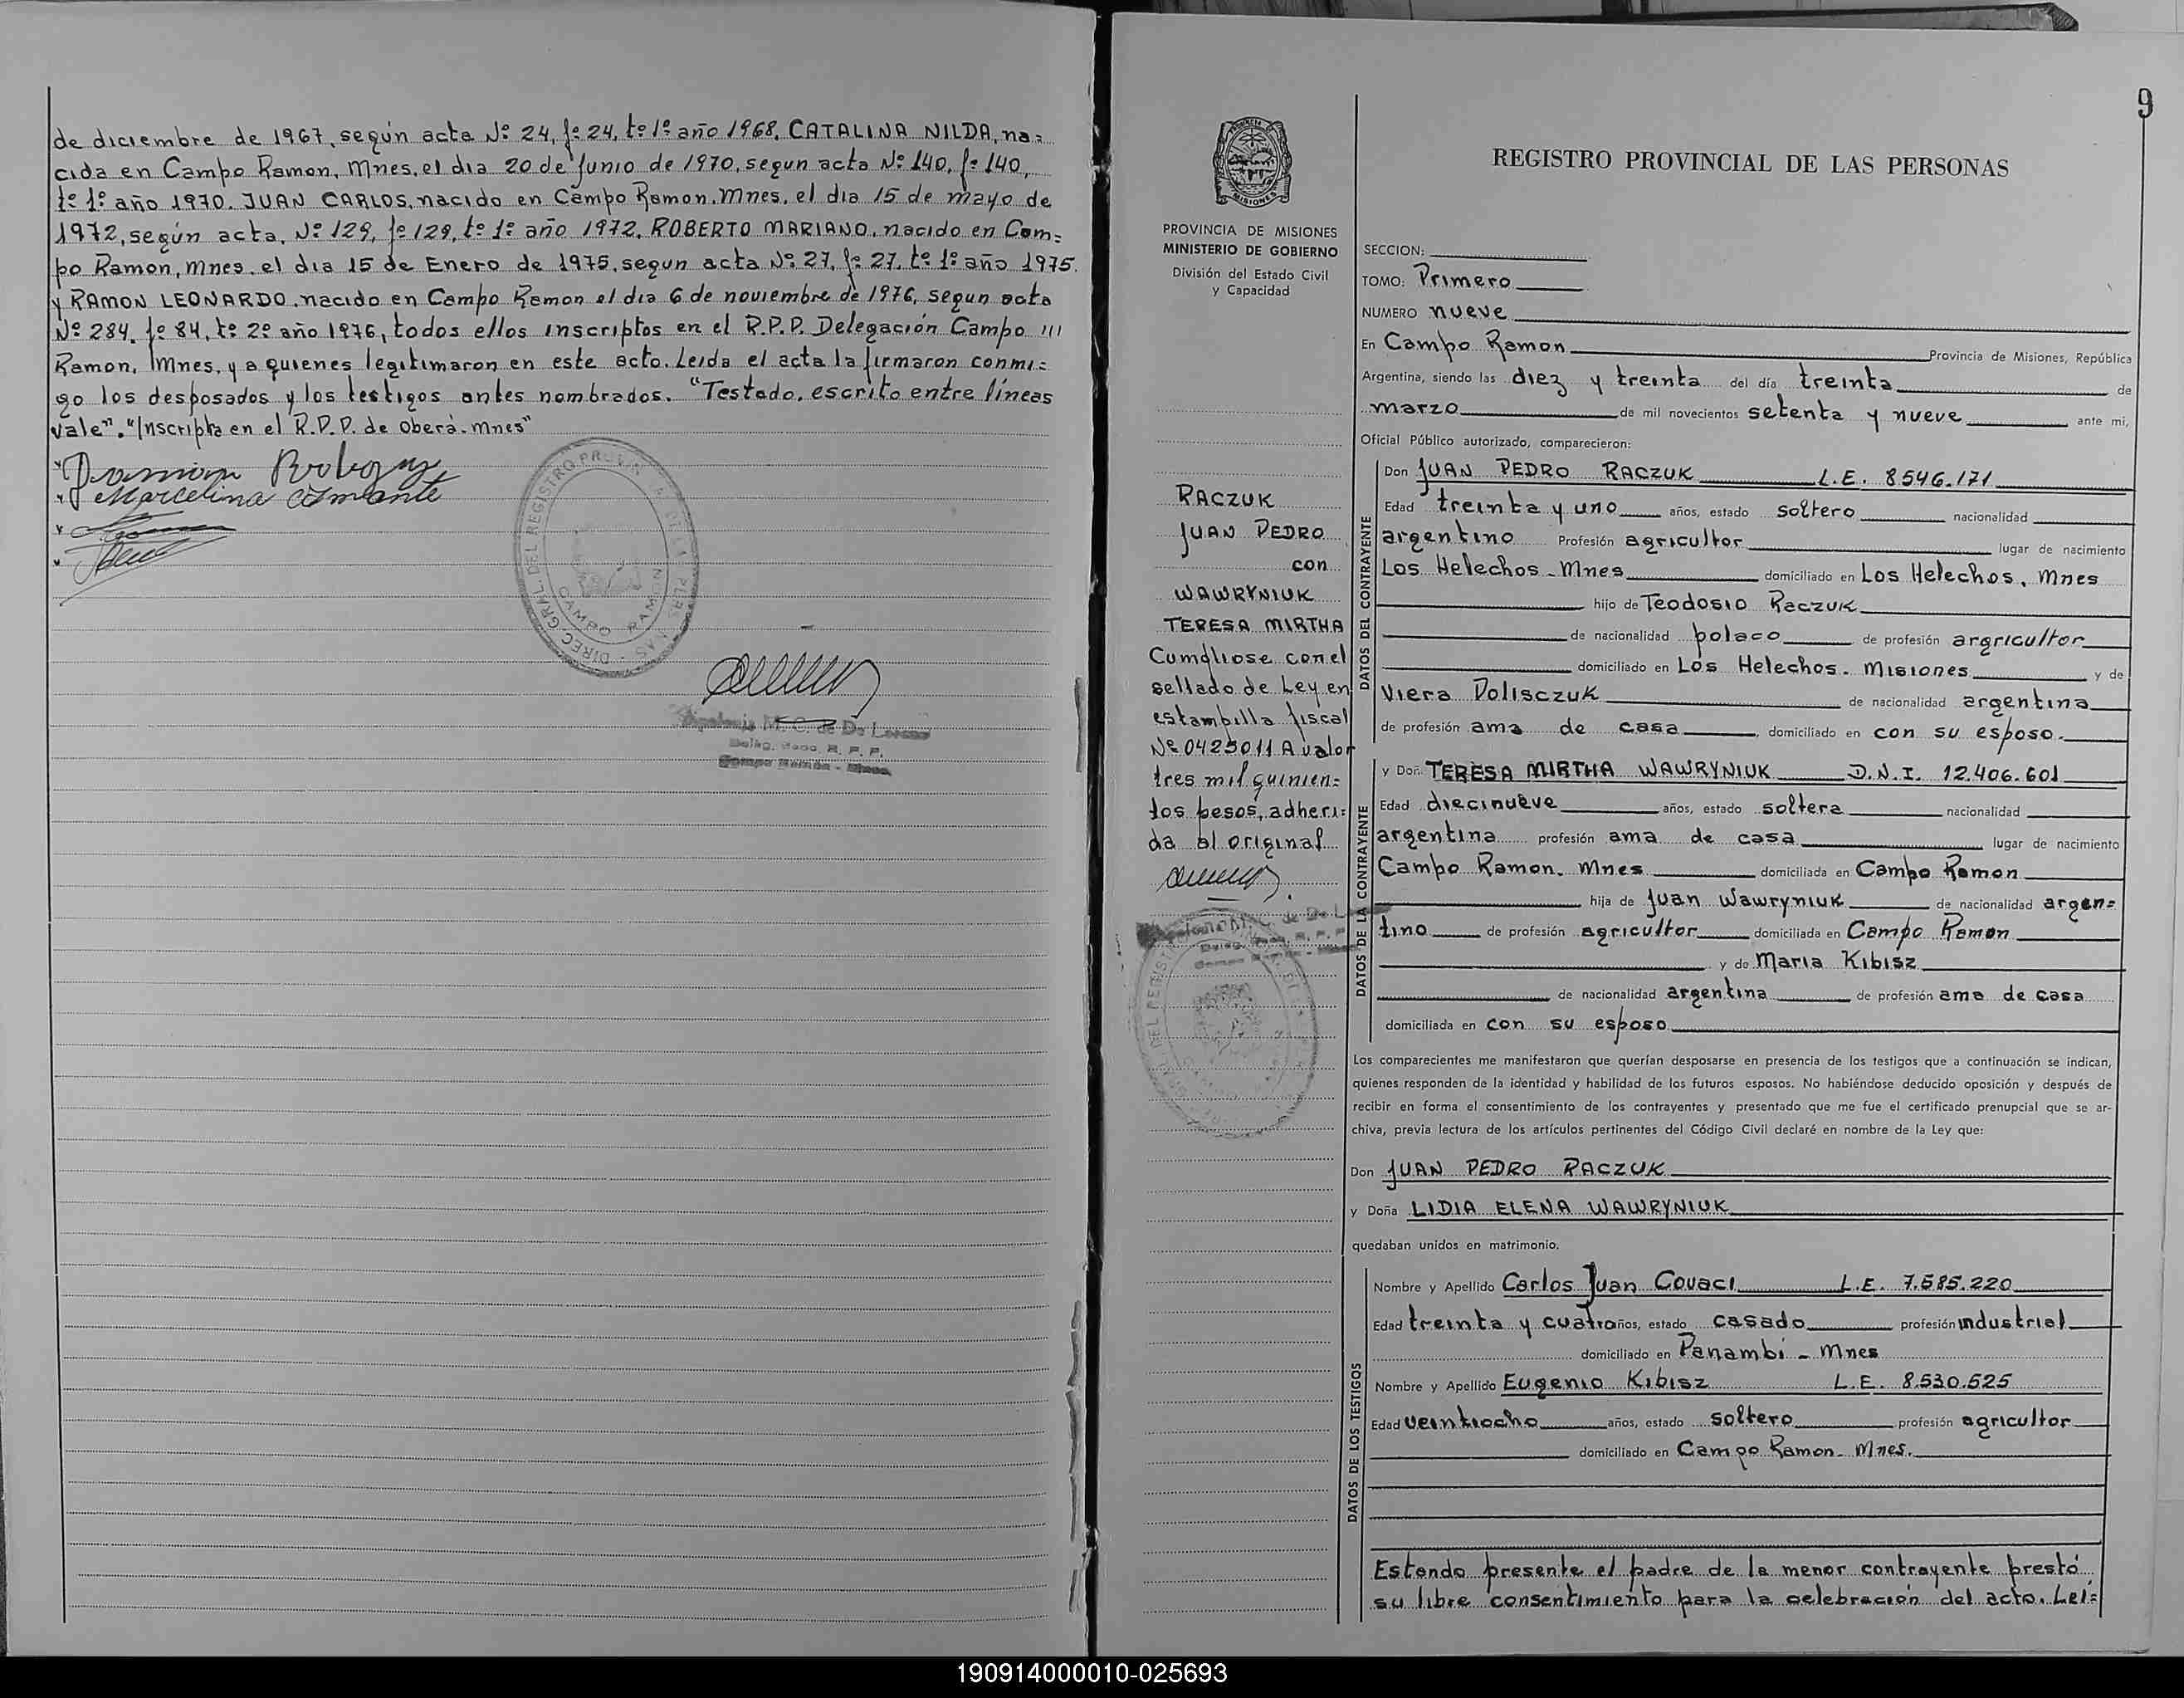 de diciembre de 1967, según acta Nº 24, fº 24, tº 1º año 1968. CATALINA NILDA, na=
cida en Campo Ramon, Mnes, el dia 20 de Junio de 1970, segun acta Nº 140, fº 140,
tº 1º año 1970. JUAN CARLOS, nacido en Campo Ramon, Mnes, el dia 15 de mayo de
1972, según acta, Nº 129, fº 129, tº 1º año 1972. ROBERTO MARIANO, nacido en Cam=
po Ramon, Mnes, el dia 15 de Enero de 1975, segun acta Nº 27, fº 27, tº 1º año 1975.
y RAMON LEONARDO, nacido en Campo Ramon el dia 6 de noviembre de 1976, segun acta
Nº 284, fº 84, tº 2º año 1976, todos ellos inscriptos en el R.P.P. Delegación Campo
Ramon, Mnes, y a quienes legitimaron en este acto. Leida el acta la firmaron conmi=
go los desposados y los testigos antes nombrados. "Testado, escrito entre líneas
vale". "Inscripta en el R.P.P. de Oberá. Mnes"
Marcelina
DIREC. GRAL. DEL REGISTRO PROVIN
CAMPO RAMON
M. C. de De
Campo Ramón
9
REGISTRO PROVINCIAL DE LAS PERSONAS
MISIONES
PROVINCIA DE MISIONES
MINISTERIO DE GOBIERNO
División del Estado Civil
y Capacidad
RACZUK
JUAN PEDRO
con
WAWRYNIUK
TERESA MIRTHA
Cumpliose con el
sellado de Ley en
estampilla fiscal
Nº 0425011 A valor
tres mil quinien=
tos pesos, adheri=
da al original
SECCION:
TOMO: Primero
NUMERO nueve
En Campo Ramon Provincia de Misiones, República
Argentina, siendo las diez y treinta del día treinta de
marzo de mil novecientos setenta y nueve ante mi,
Oficial Público autorizado, comparecieron:
DATOS DEL CONTRAYENTE
Don JUAN PEDRO RACZUK L.E. 8546.171
Edad treinta y uno años, estado soltero nacionalidad
argentino Profesión agricultor lugar de nacimiento
Los Helechos - Mnes domiciliado en Los Helechos, Mnes
hijo de Teodosio Raczuk
de nacionalidad polaco de profesión argricultor
domiciliado en Los Helechos. Misiones y de
Viera Dolisczuk de nacionalidad argentina
de profesión ama de casa, domiciliado en con su esposo.
DATOS DE LA CONTRAYENTE
y Doñ. TERESA MIRTHA WAWRYNIUK D.N.I. 12.406.601
Edad diecinueve años, estado soltera nacionalidad
argentina profesión ama de casa lugar de nacimiento
Campo Ramon. Mnes domiciliada en Campo Ramon
hija de Juan Wawryniuk de nacionalidad argen=
tino de profesión agricultor domiciliada en Campo Ramon
y de Maria Kibisz
de nacionalidad argentina de profesión ama de casa
domiciliada en con su esposo
Los comparecientes me manifestaron que querían desposarse en presencia de los testigos que a continuación se indican,
quienes responden de la identidad y habilidad de los futuros esposos. No habiéndose deducido oposición y después de
recibir en forma el consentimiento de los contrayentes y presentado que me fue el certificado prenupcial que se ar-
chiva, previa lectura de los artículos pertinentes del Código Civil declaré en nombre de la Ley que:
Don JUAN PEDRO RACZUK
y Doña LIDIA ELENA WAWRYNIUK
quedaban unidos en matrimonio.
DATOS DE LOS TESTIGOS
Nombre y Apellido Carlos Juan Covaci L.E. 7.585.220
Edad treinta y cuatro años, estado casado profesión industrial
domiciliado en Panambí - Mnes
Nombre y Apellido Eugenio Kibisz L.E. 8.530.525
Edad veintiocho años, estado soltero profesión agricultor
domiciliado en Campo Ramon - Mnes.
Estando presente el padre de la menor contrayente prestó
su libre consentimiento para la celebración del acto. Lei=
190914000010-025693